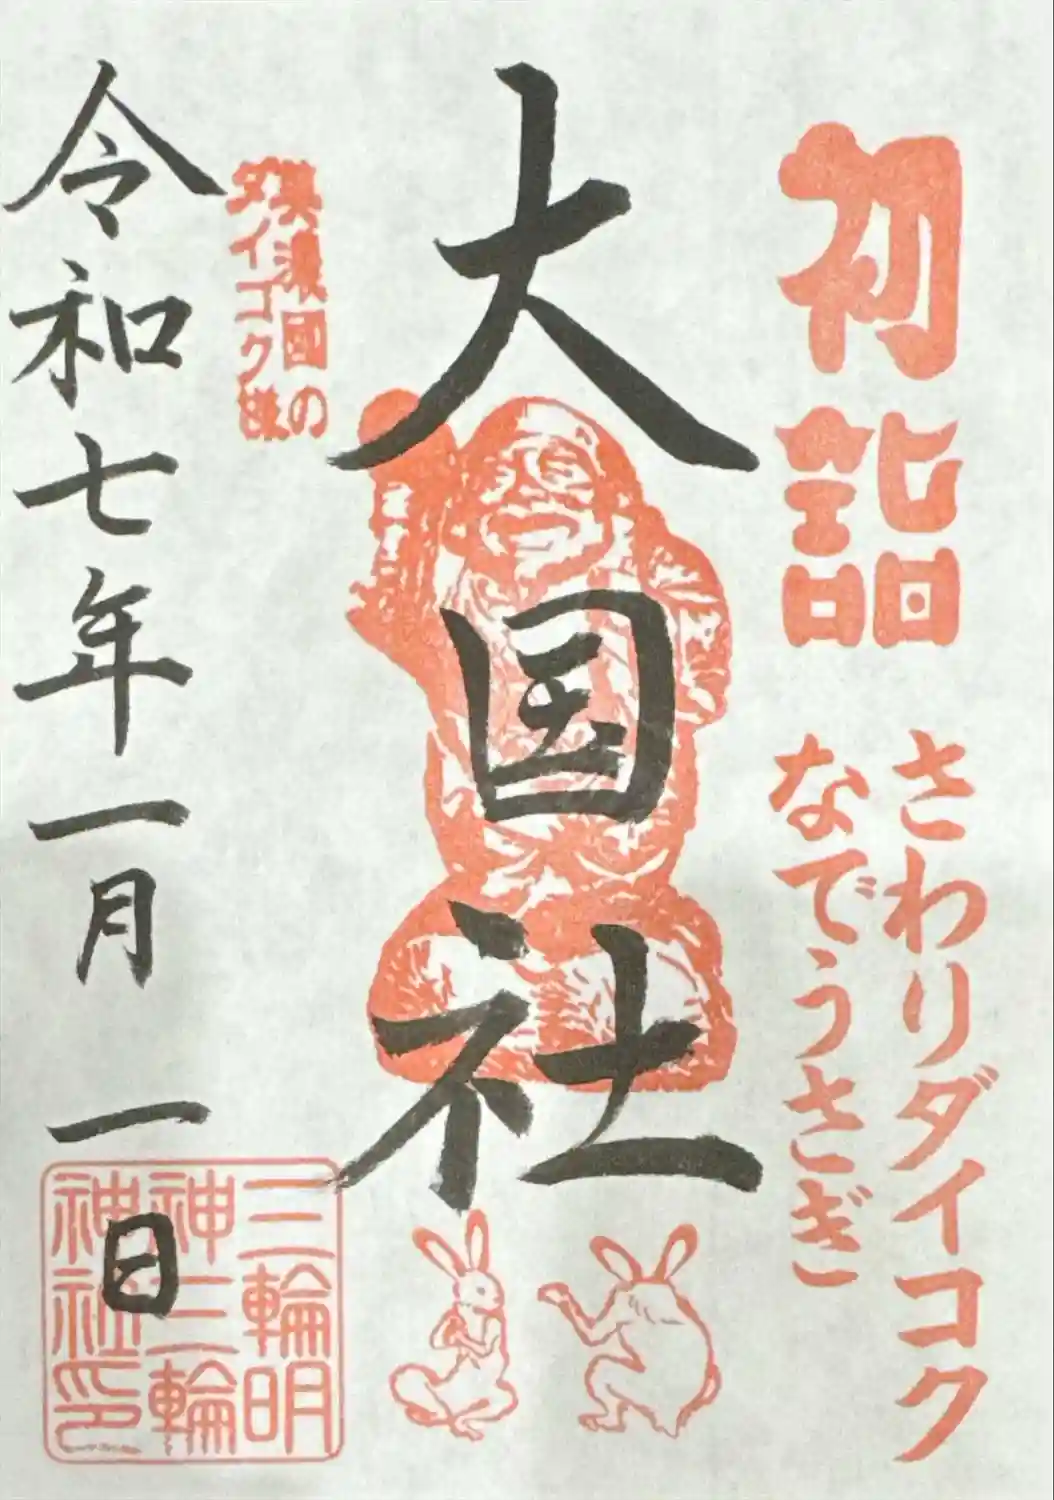 初詣
さわりダイコク
なでうさぎ
大国社
美濃国の
ダイコク様
令和七年一月一日
三輪明
神三輪
神社印